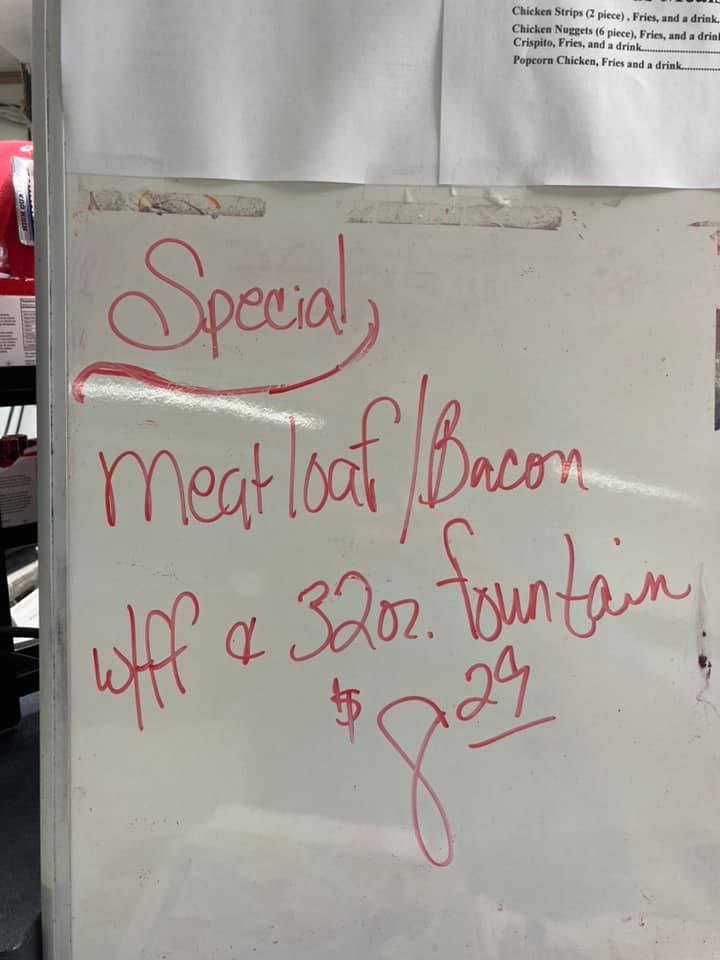 Chicken Strips (2 piece) , Fries, and a drink.
Chicken Nuggets (6 piece), Fries, and a drin
Crispito, Fries, and a drink..............
Popcorn Chicken, Fries and a drink............
Special
Meatloaf/Bacon
w/ff & 32oz. fountain
$8.29